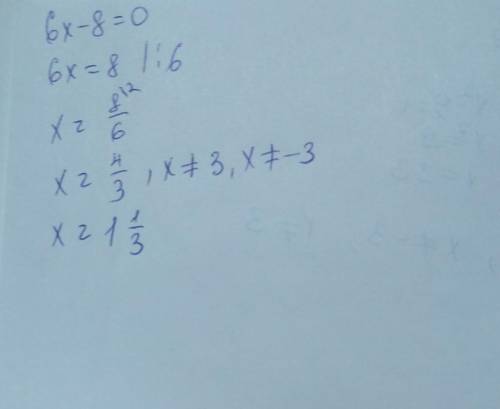 6x-8=0
6x=8 |:6
x= 8\2/6
x= 4/3, x≠3, x≠-3
x= 1 1/3